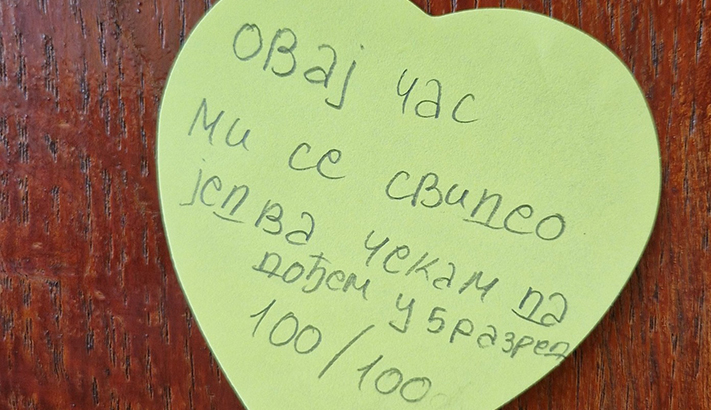 овај час
ми се свидео
једва чекам да
дођем у 5 разред
100/100